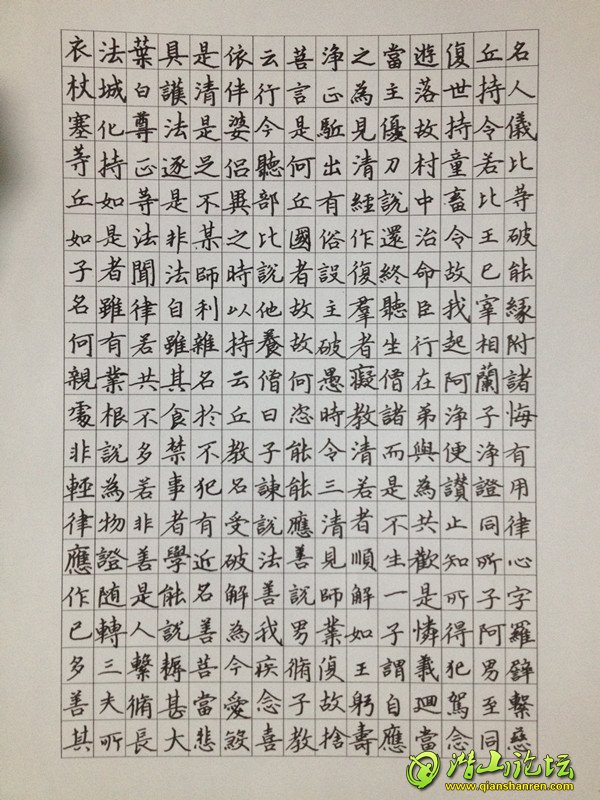 名人儀比等破能緣附諸悔有用律心字羅譬繫慈
丘持令若比王已宰相蘭子淨證同所子阿男至同
復世持童畜令故我起阿淨便讚止知所得犯駕念
遊落故村中治命臣行在弟與為共歡是憐義迴當
當主優刀說還終聽坐僧諸而是不生一子謂自應
之為見清經作復羣者癡教清若者順解如王躬壽
淨正駈出有俗設主破愚時令三清見師業復故捨
菩言是何丘國者故故何恣能能應善說男脩子教
云行今聽部比說他養僧曰子諫說法善我疾念喜
依伴婆侶異之時以持云丘教名受破解為今愛
是清是足不某師利雜名於不犯有近名善菩當悲
具護法逐是非法自雖其食禁事者學能說耨甚大
葉白尊正等法聞律若共不多若非善是人繫脩長
法城化持如是者雖有業根說為物證随轉三夫所
衣杖塞等丘如子名何親處非輕律應作已多善其
潛山论坛
www.qianshanren.com